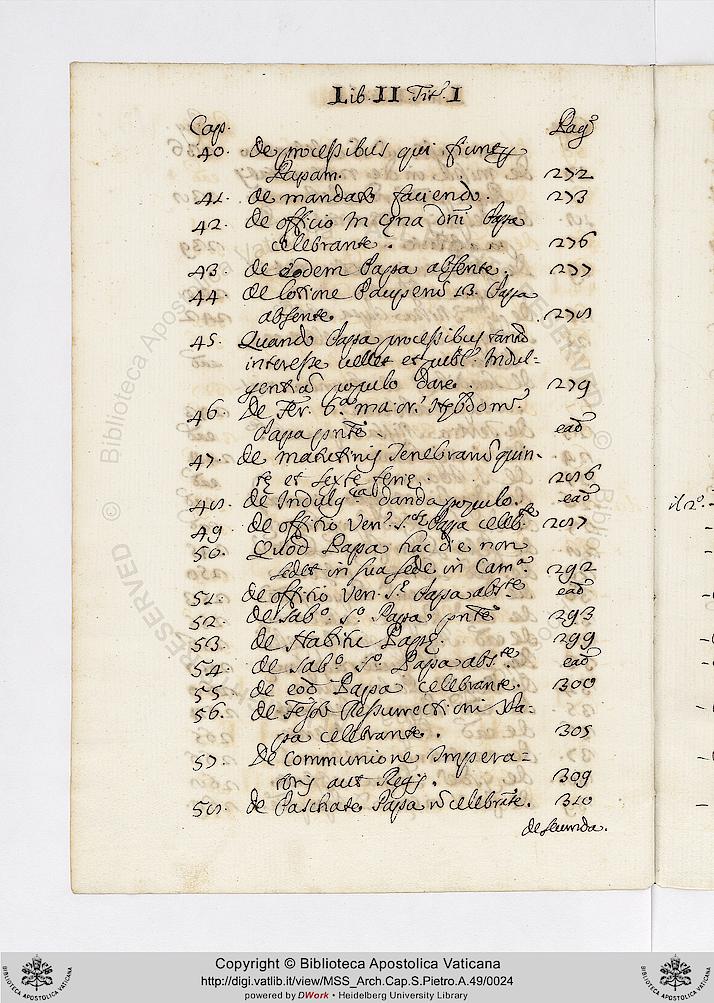 Lib. II Titˢ. I
Cap. Pagˢ
40. de processibus qui fiunt
Papam. 272
41. de mandato faciendo. 273
42. de officio in cęna dñi Papa
celebrante. 276
43. de eodem Papa absente. 277
44. de lotione Pauperũ Papa
absente. 278
45. Quando Papa processibus
interesse uellet et Indul-
gentiã populo dare. 279
46. De Fer. 6.ᵃ maior. Hębdomᵉ.
Papa pñte. eaď
47. de matutinis Tenebrarũ quin-
tę et sextę ferię. 286
48. de Indulg. danda populo. eaď
49. de offitio Ven. Papa celebᵗᵉ 287
50. Quod Papa hac die non
sedet in sua sede in Camᵃ. 292
51. de offitio Ven. Sᵗ Papa absᵗᵉ eaď
52. de sabᵒ. Sᵒ. Papa pñte 293
53. de Habitu Papę. 299
54. de sabᵒ. Sᵒ. Papa absᵗᵉ. eaď
55. de eoď Papa celebrante. 300
56. de Festo Resurrectioni Pa-
pa celebrante. 305
57. De communione Impera-
toris aut Regis. 309
58. de Paschate Papa ñ celebrãte. 310
de secunda.
il 2ᵒ.
Copyright © Biblioteca Apostolica Vaticana
http://digi.vatlib.it/view/MSS_Arch.Cap.S.Pietro.A.49/0024
powered by DWork • Heidelberg University Library